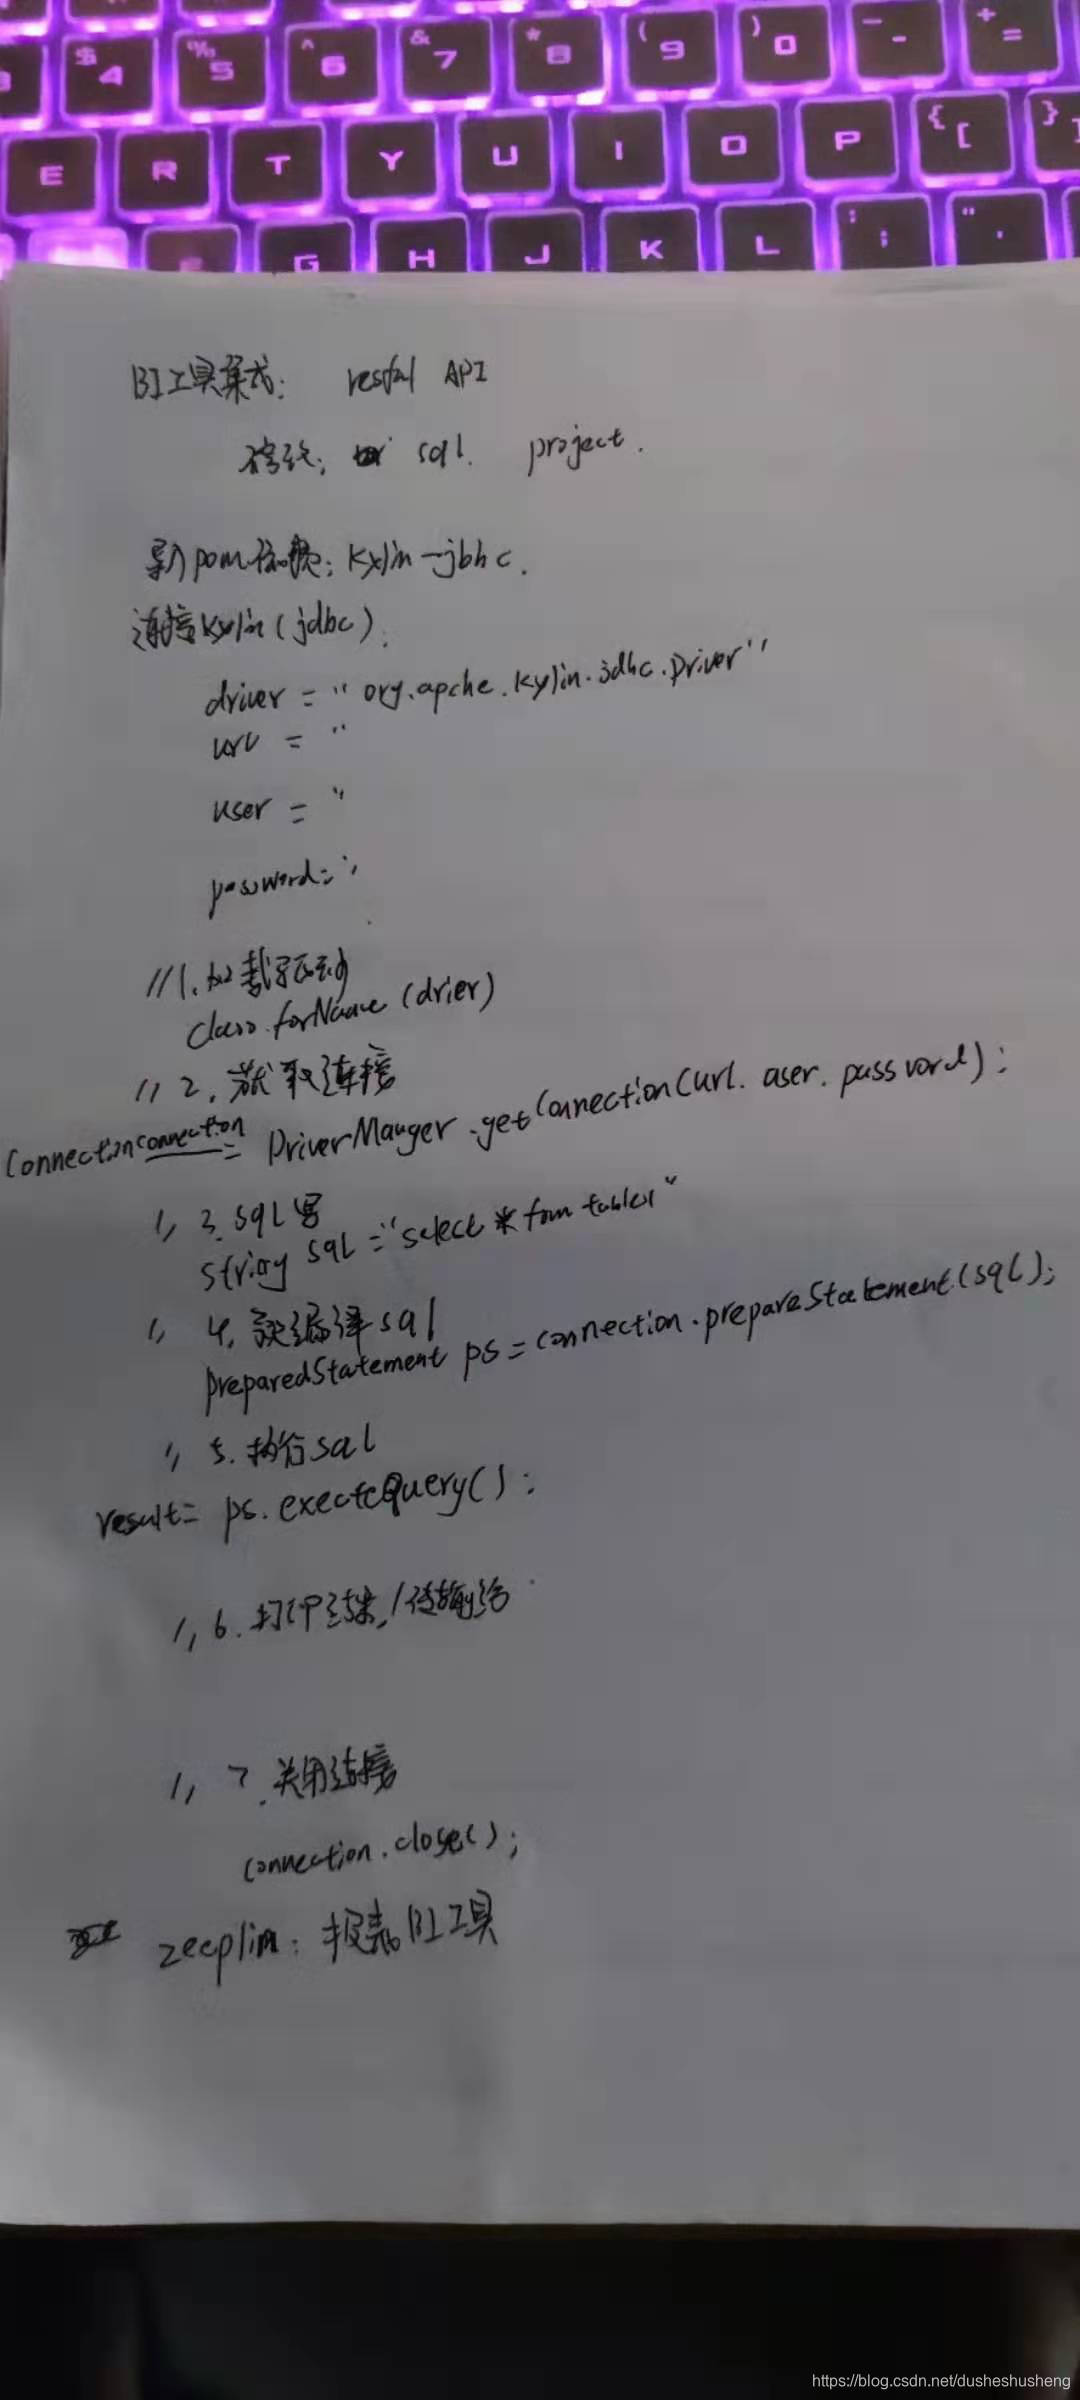 $ 4 % 5 ^ 6 & 7 * 8 ( 9 ) 0 _ - + =
E R T Y U I O P { [ }
G H J K L : ; " '
BI工具集成: restful API
sql. project.
导入pom依赖: kylin-jbhc.
连接kylin(jdbc):
driver = " org.apche.kylin.jdbc.Driver"
url = "
user = "
password="
//1.加载驱动
Class.forName (drier)
// 2. 获取连接
Connection connection = DriverManger.getConnection(url. user. password);
// 3. sql 写
string sql = "select * from table1"
// 4. 预编译sql
preparedStatement ps = connection.prepareStatement(sql);
// 5. 执行sql
result= ps.executeQuery();
// 6. 打印结果/传输给
// 7. 关闭连接
connection.close();
zeeplin: 报表BI工具
https://blog.csdn.net/dusheshusheng